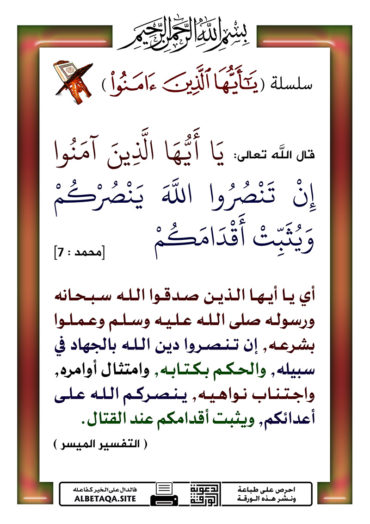 بسم الله الرحمن الرحيم
سلسلة ( يَـٰٓأَيُّهَا ٱلَّذِينَ ءَامَنُوا۟ )
قال اللَّه تعالى: يَا أَيُّهَا الَّذِينَ آمَنُوا
إِنْ تَنْصُرُوا اللَّهَ يَنْصُرْكُمْ
وَيُثَبِّتْ أَقْدَامَكُمْ [محمد : 7]
أي يا أيها الذين صدقوا الله سبحانه
ورسوله صلى الله عليه وسلم وعملوا
بشرعه, إن تنصروا دين الله بالجهاد في
سبيله, والحكم بكتابه, وامتثال أوامره,
واجتناب نواهيه, ينصركم الله على
أعدائكم, ويثبت أقدامكم عند القتال.
( التفسير الميسر )
احرص على طباعة
ونشر هذه الورقة
الورقة الدعوية
فالدال على الخير كفاعله
ALBETAQA.SITE